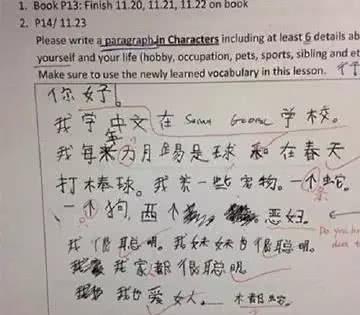 1. Book P13: Finish 11.20, 11.21, 11.22 on book
2. P14/ 11.23
Please write a paragraph in Characters including at least 6 details ab
yourself and your life (hobby, occupation, pets, sports, sibling and et
Make sure to use the newly learned vocabulary in this lesson.
你好。
我学中文在 学校。
我每 月 是球 和 在春天
打棒球。我 一些宠物。一个蛇。
一个狗 两个 恶
我很聪明。我妹妹也很聪明。
我家都很聪明。
我也爱女人。